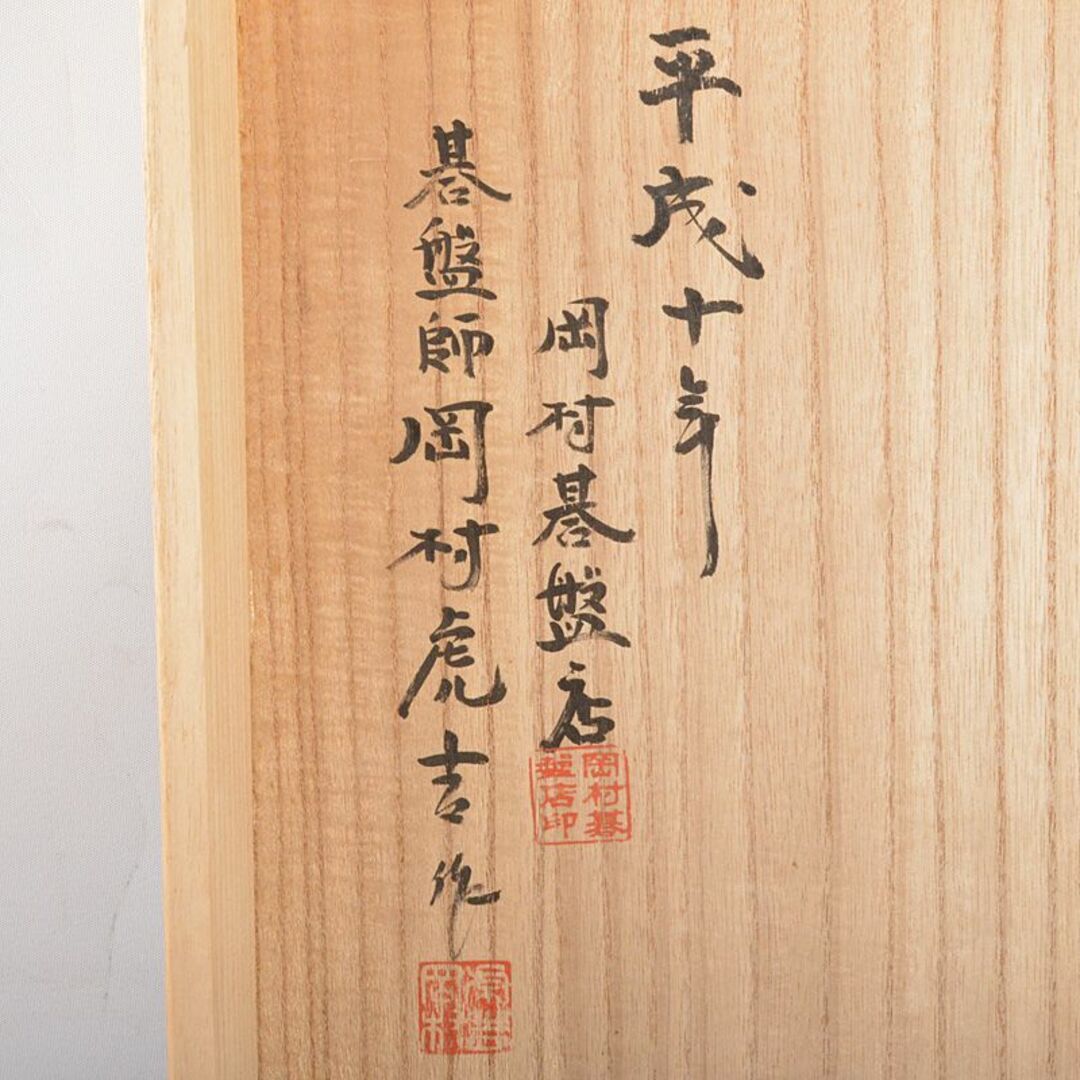 平成十年
岡村碁盤店
岡村碁
盤店印
碁盤師岡村虎吉作